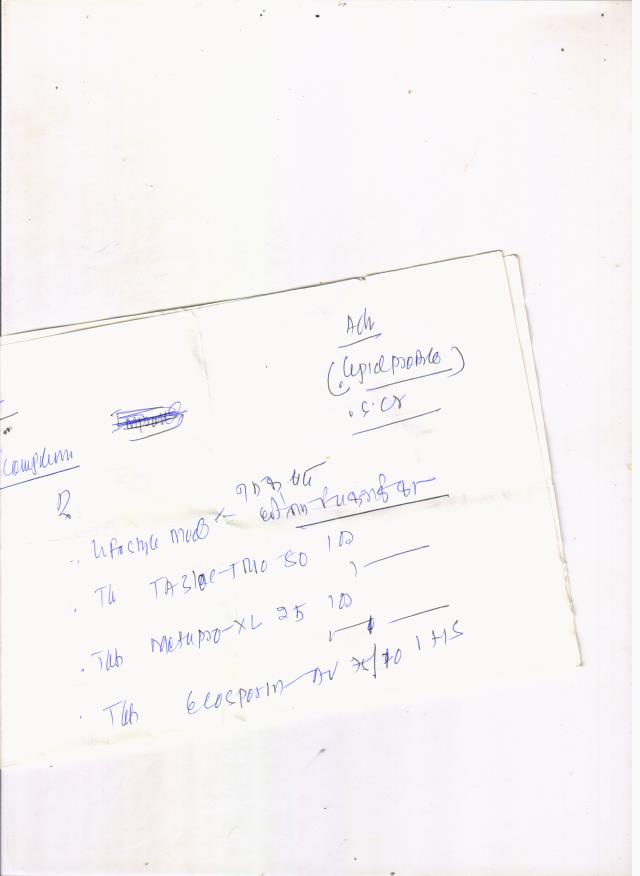 Adv
(Lipid profile)
. S. Cr
Complain
. Lifestyle Mod
. Tab TAZloc-TRIO 80 1 OD
. Tab Metapro-XL 25 1 OD
. Tab Ecosporin-AV 75/10 1 HS